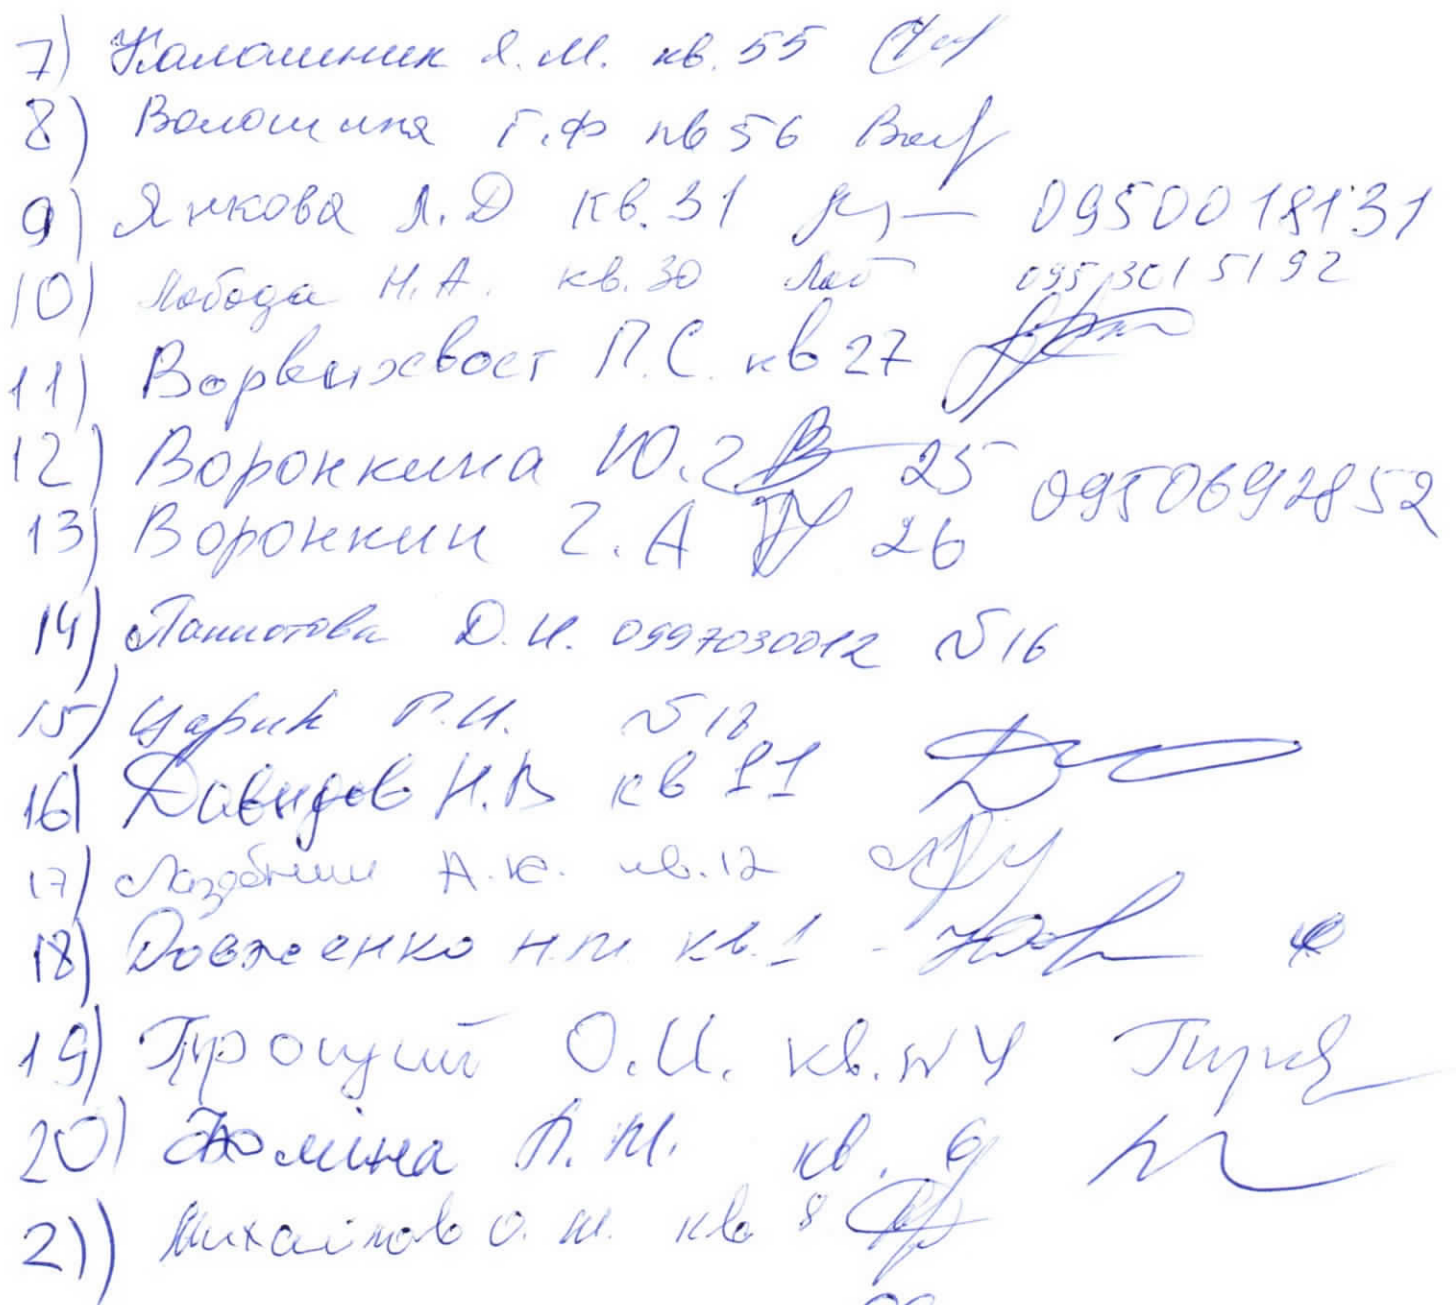 7) Калашник Я.М. кв. 55
8) Волошина Г.Ф кв 56
9) Янкова Л.Д кв. 31 0950018131
10) Лобода Н.А. кв. 30 Лоб 0953015192
11) Ворвихвост П.С. кв 27
12) Воронкина Ю.Г 25 0950692852
13) Воронкин Г.А 26
14) Д.И. 0997030012 №16
15) Царик Г.И. №18
16) Давидов Н.В кв 11
17) А.К. кв. 12
18) Довженко Н.М. кв. 1
19) Троцкий О.И. кв. №4
20) Фоміна Л.М. кв. 9
21) Михайлов О.М. кв. 8